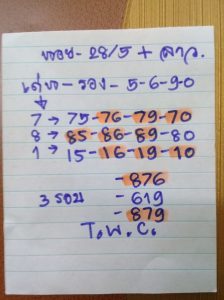 หวย - 28/5 + ลาว.
เด่น - รอง - 5-6-9-0
7 → 75-76-79-70
8 → 85-86-89-80
1 → 15-16-19-10
-876
3 รอบ -619
-879
T.W.C.